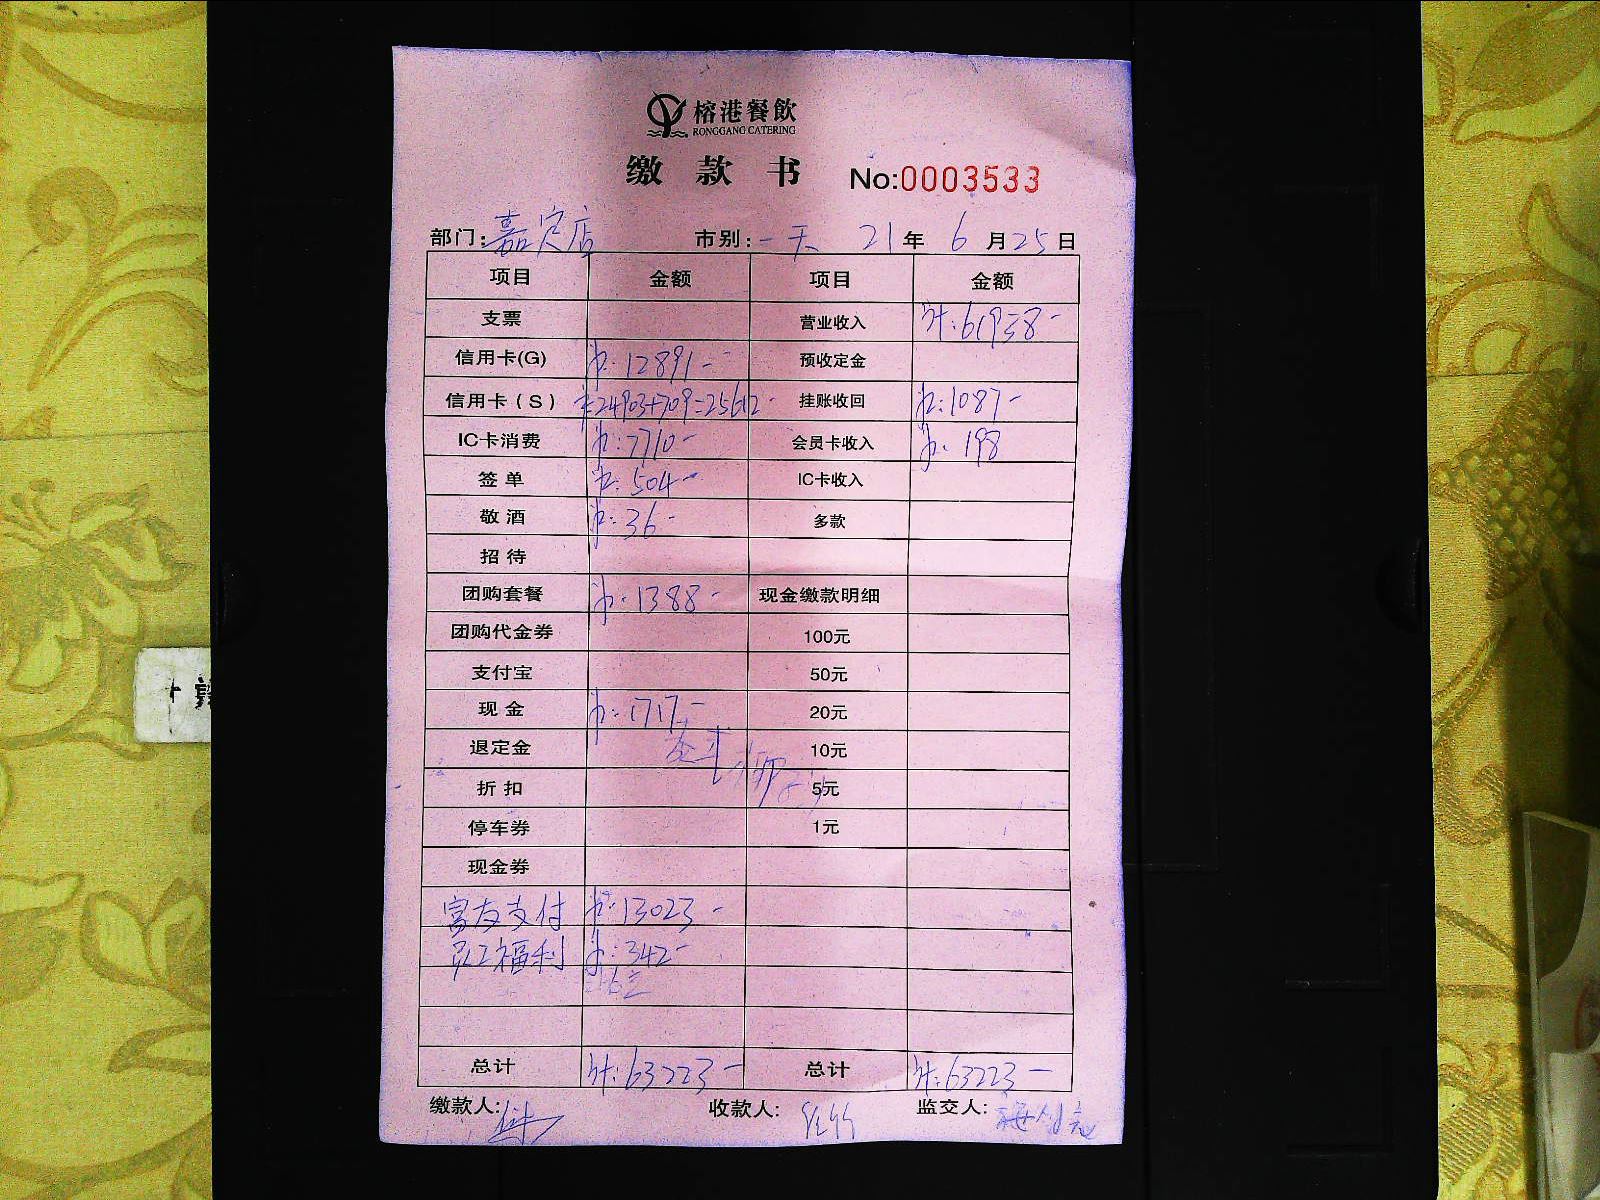 榕港餐飲
RONGGANG CATERING
缴款书 No:0003533
部门:嘉定店 市别:一天 21年6月25日
项目 金额 项目 金额
支票 营业收入 计:61938-
信用卡(G) 12891- 预收定金
信用卡(S) 24903+709=25612- 挂账收回 1087-
IC卡消费 7710- 会员卡收入 198
签单 504- IC卡收入
敬酒 36- 多款
招待
团购套餐 1388- 现金缴款明细
团购代金券 100元
支付宝 50元
现金 1717- 20元
退定金 10元
折扣 5元
停车券 1元
现金券
富友支付 13023-
员工福利 342-
总计 计:63223- 总计 计:63223-
缴款人: 收款人: 监交人: